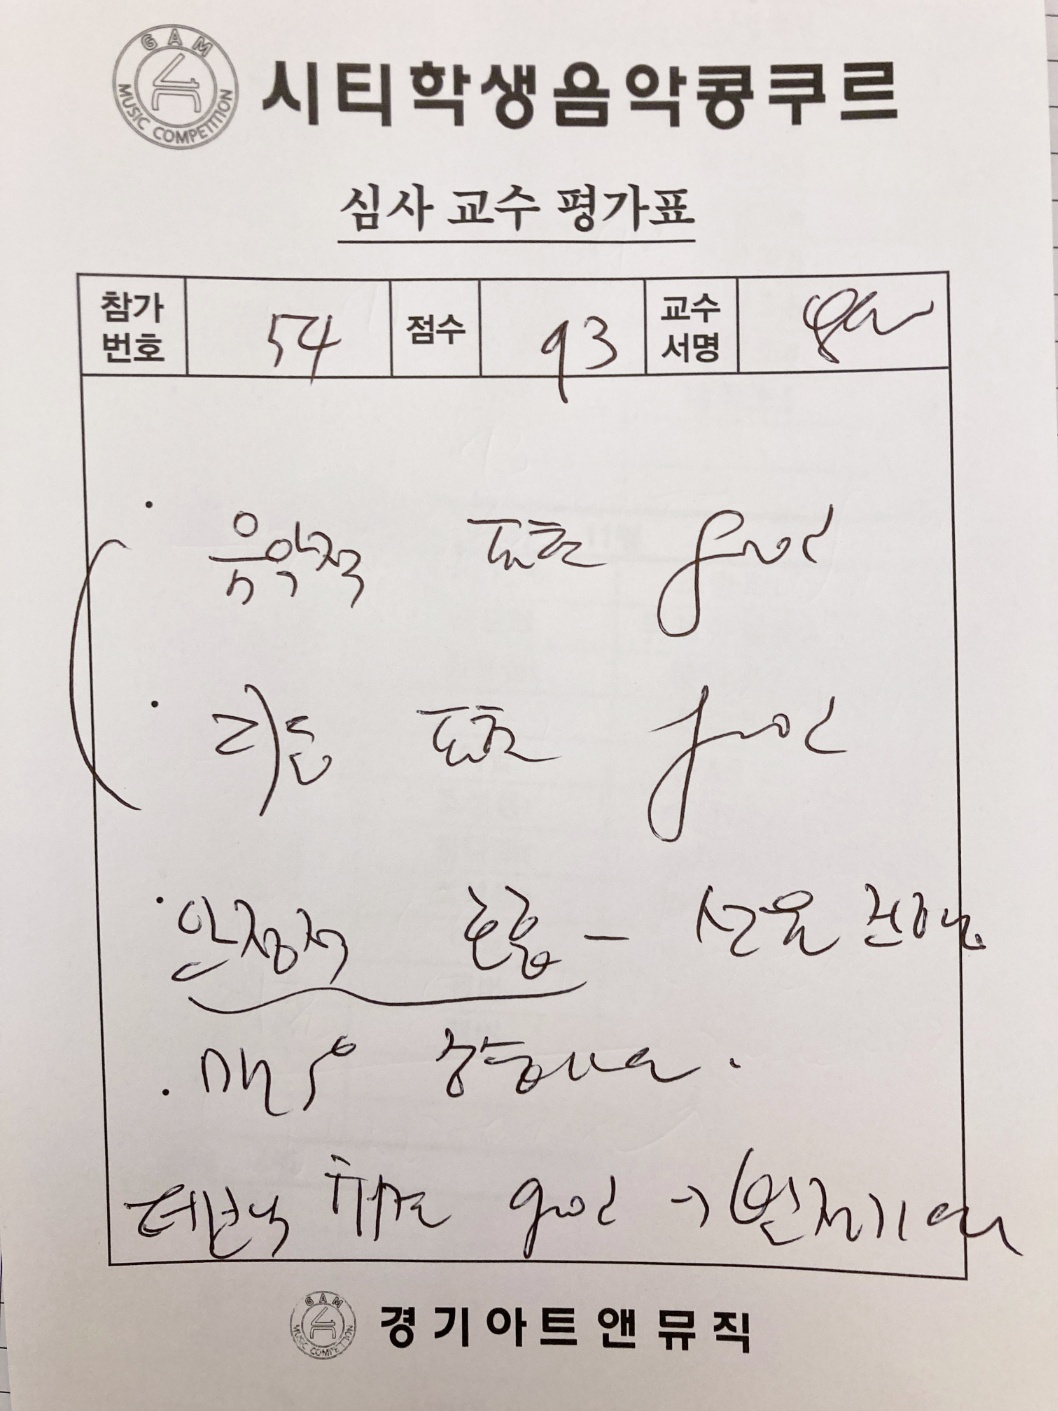 GAM MUSIC COMPETITION
시티학생음악콩쿠르
심사 교수 평가표
참가번호 54 점수 93 교수서명
· 음악적 표현 good
· 리듬 표현 good
· 안정적 호흡 – 선율 진행.
· 매우 훌륭해요.
테크닉 good →
GAM MUSIC COMPETITION
경기아트앤뮤직